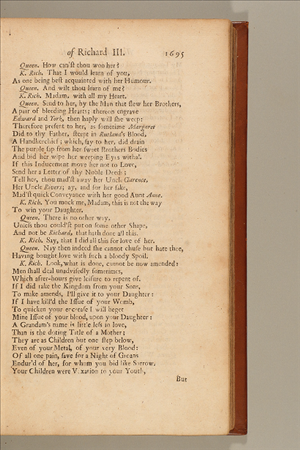 of Richard III. 1695
Queen. How can'st thou woo her?
K. Rich. That I would learn of you,
As one being best acquainted with her Humour.
Queen. And wilt thou learn of me?
K. Rich. Madam, with all my Heart.
Queen. Send to her, by the Man that slew her Brothers,
A pair of bleeding Hearts; thereon engrave
Edward and York, then haply will she weep:
Therefore present to her, as sometime Margaret
Did to thy Father, steept in Rutland's Blood,
A Handkerchief; which, say to her, did drain
The purple sap from her sweet Brothers Bodies
And bid her wipe her weeping Eyes withal.
If this Inducement move her not to Love,
Send her a Letter of thy Noble Deeds:
Tell her, thou mad'st away her Uncle Clarence,
Her Uncle Rivers; ay, and for her sake,
Mad'st quick Conveyance with her good Aunt Anne.
K. Rich. You mock me, Madam, this is not the way
To win your Daughter.
Queen. There is no other way,
Unless thou could'st put on some other Shape,
And not be Richard, that hath done all this.
K. Rich. Say, that I did all this for love of her.
Queen. Nay then indeed she cannot chuse but hate thee,
Having bought love with such a bloody Spoil.
K. Rich. Look, what is done, cannot be now amended:
Men shall deal unadvisedly sometimes,
Which after-hours give leisure to repent of.
If I did take the Kingdom from your Sons,
To make amends, I'll give it to your Daughter:
If I have kill'd the Issue of your Womb,
To quicken your encrease I will beget
Mine Issue of your blood, upon your Daughter:
A Grandam's name is little less in love,
Than is the doting Title of a Mother;
They are as Children but one step below,
Even of your Metal, of your very Blood:
Of all one pain, save for a Night of Groans
Endur'd of her, for whom you bid like Sorrow.
Your Children were Vexation to your Youth,
But